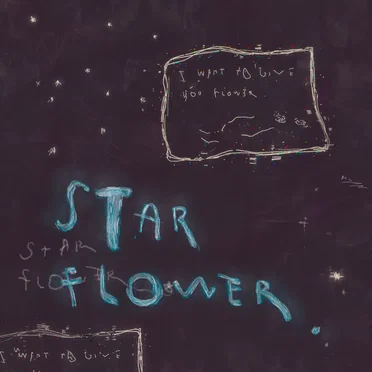 I WANT TO GIVE
YOU FLOWER.
STAR
FLOWER.
STAR
FLOWER
I WANT TO GIVE